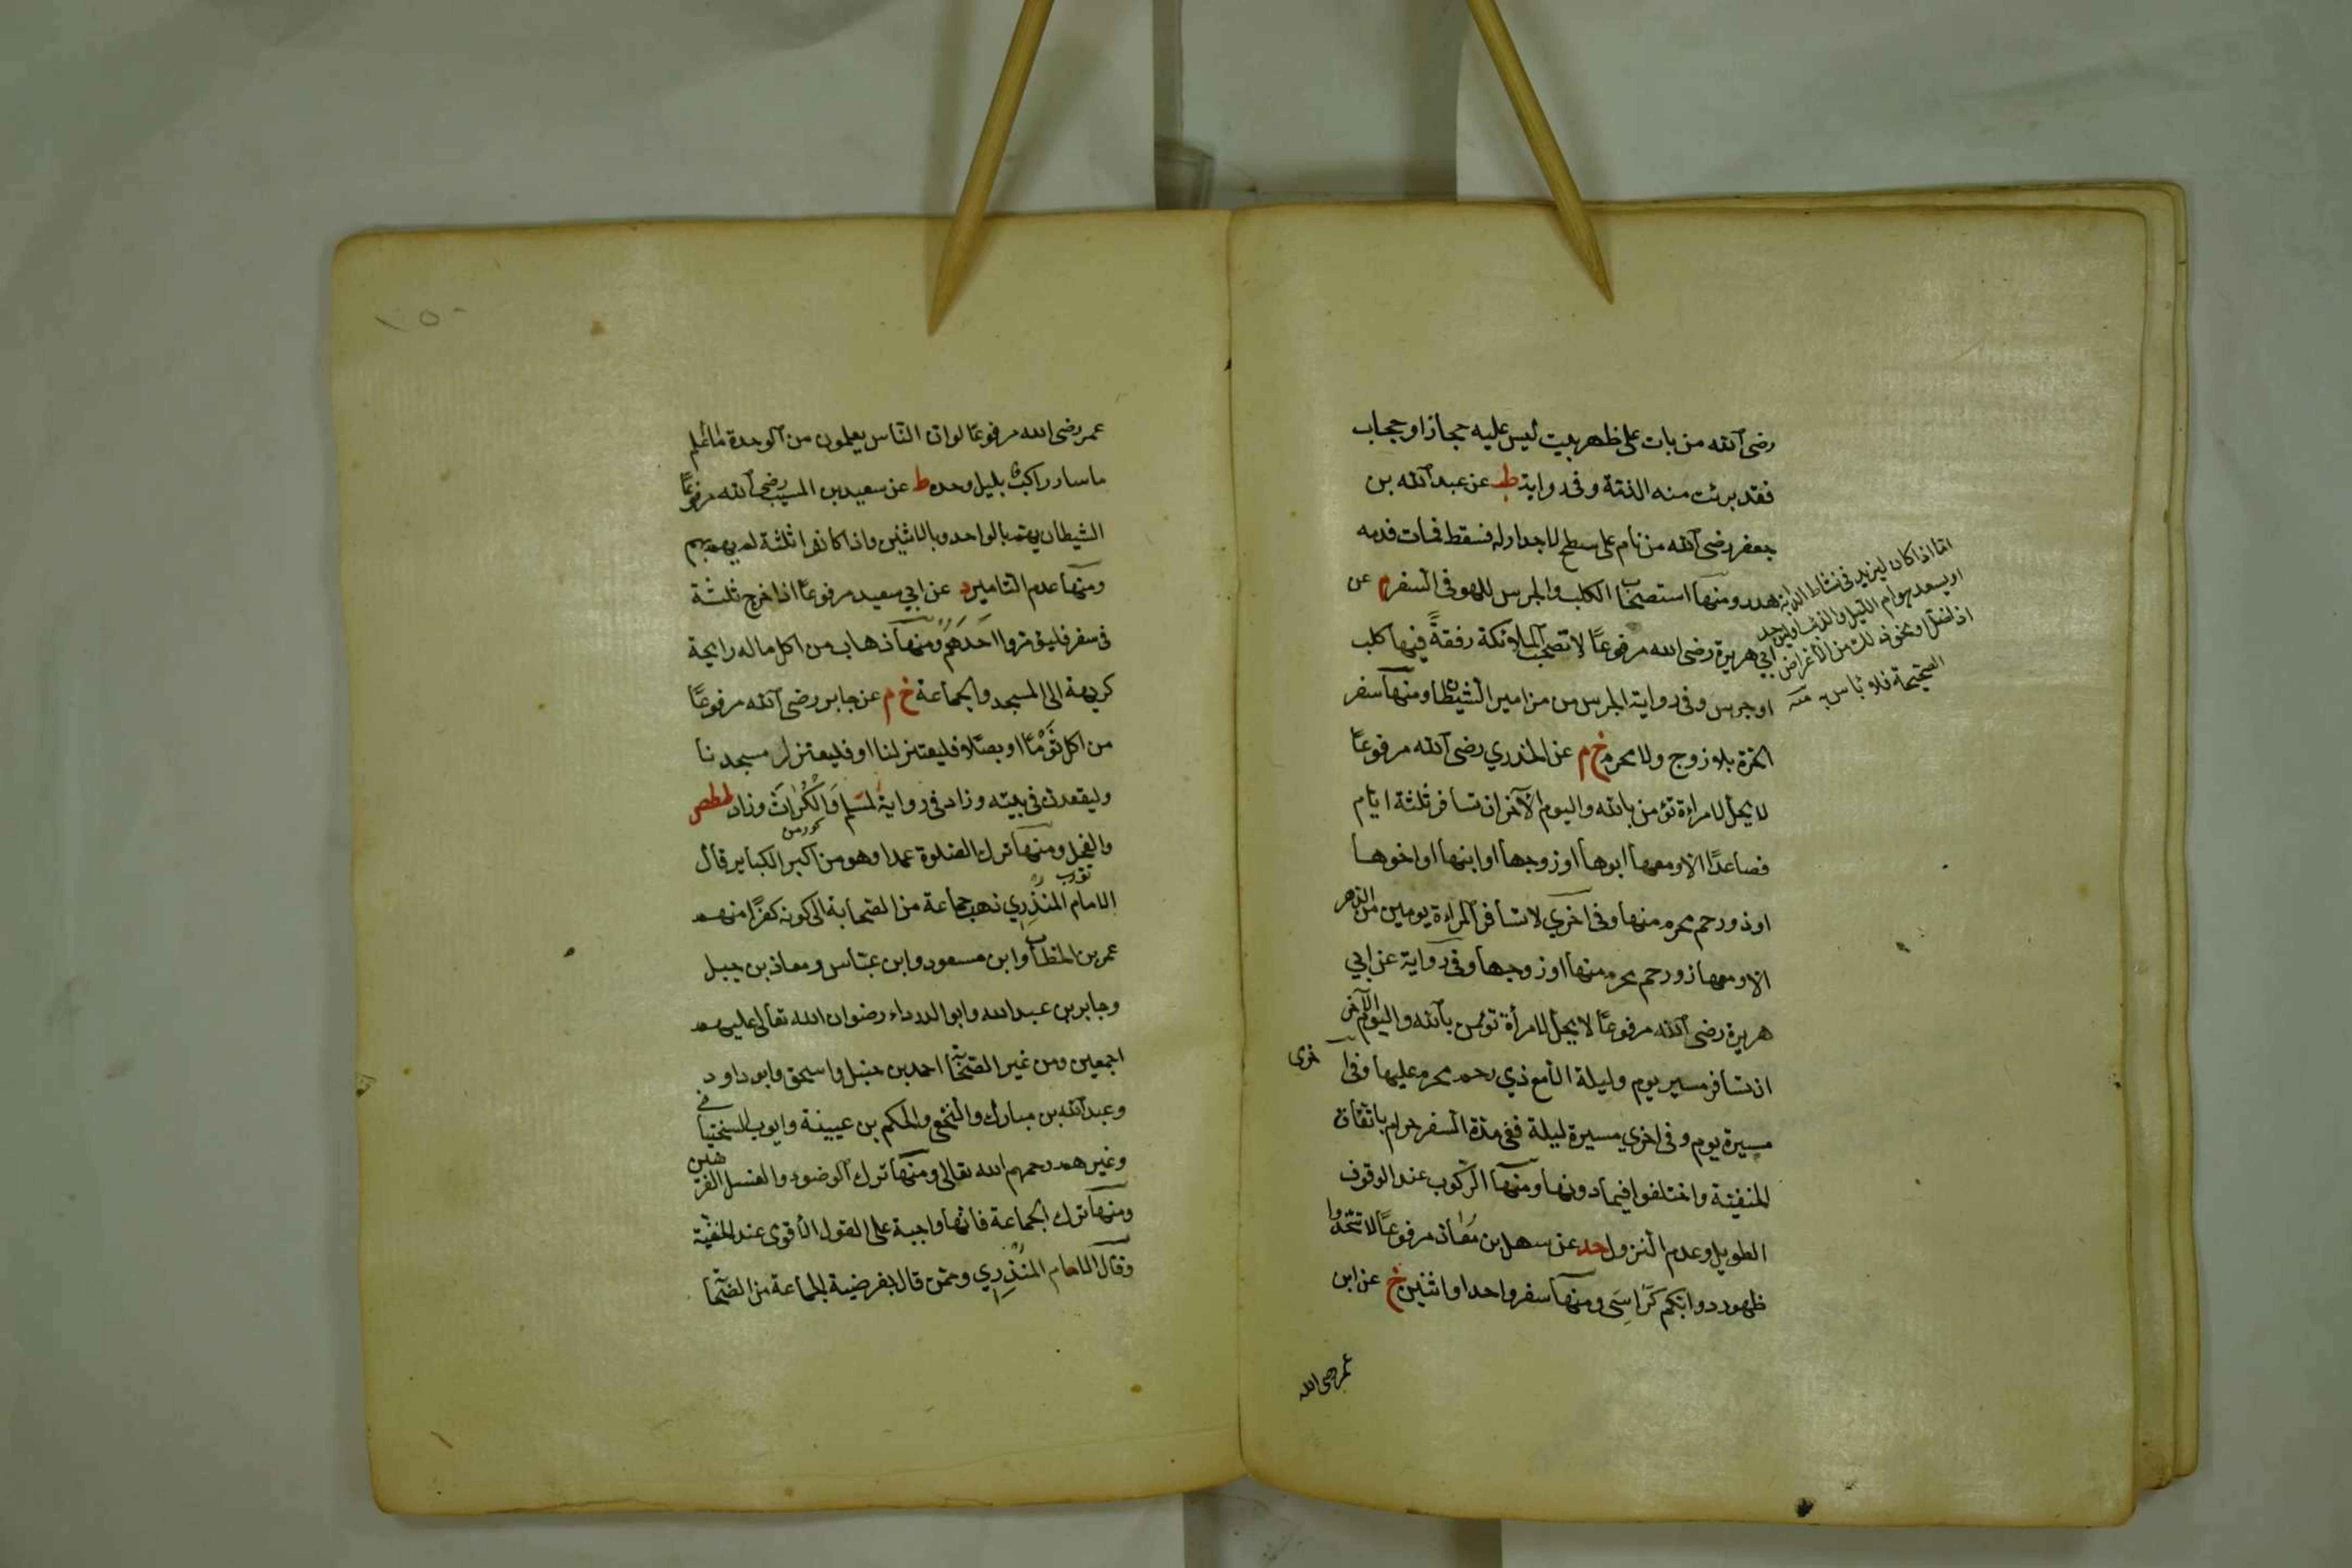 رضى الله من بات على ظهر بيت ليس عليه حجاز او حجاب
فقد برئت منه الذمة وفى رواية طب عن عبد الله بن
جعفر رضى الله من نام على سطح لا جدار له فسقط فمات فدمه
هدر ومنها استصحاب الكلب والجرس للهو فى السفر م عن
ابى هريرة رضى الله مرفوعًا لا تصحب الملائكة رفقةً فيها كلب
او جرس وفى رواية الجرس من مزامير الشيطان ومنها سفر
الحرة بلا زوج ولا محرم خ م عن الخدري رضى الله مرفوعًا
لا يحل لامراءة تؤمن بالله واليوم الآخر ان تسافر ثلثة ايام
فصاعدًا الا ومعها ابوها او زوجها او ابنها او اخوها
او ذو رحم محرم منها وفى اخري لا تسافر المراءة يومين من الدهر
الا ومعها ذو رحم محرم منها او زوجها وفى رواية عن ابي
هريرة رضى الله مرفوعًا لا يحل لامرأة تؤمن بالله واليوم الآخر
ان تسافر مسير يوم وليلة الا مع ذي رحم محرم عليها وفى ا خرى
مسيرة يوم وفى اخري مسيرة ليلة ففى مدة السفر حرام باتفاق
الحنفية واختلفوا فيما دونها ومنها الركوب عند الوقوف
الطويل وعدم النزول حد عن سهل بن معاذ مرفوعًا لا تتخذوا
ظهور دوابكم كراسى ومنها سفر واحد او اثنين خ عن ابن
عمر رضى الله
اما اذا كان ليزيد فى نشاط الدابة
او يبعد هوام الليل والذئاب وليجد
اذا ضل او نحو ذلك من الاغراض
الصحيحة فلا بأس به منه
١٥٠
عمر رضى الله مرفوعًا لو ان الناس يعلمون من الوحدة ما اعلم
ما سار راكب بليل وحده ط عن سعيد بن المسيب رضى الله مرفوعًا
الشيطان يهتم بالواحد وبالاثنين واذا كانوا ثلثة لم يهم بهم
ومنها عدم التامير د عن ابي سعيد مرفوعًا اذا خرج ثلثة
فى سفر فليؤمروا احدهم ومنها ذهاب من اكل ماله رايحة
كريهة الى المسجد والجماعة خ م عن جابر رضى الله مرفوعًا
من اكل ثومًا او بصلا فليعتزلنا او فليعتزل مسجدنا
وليقعد فى بيته وزاد فى رواية لمسلم والكراث وزاد طط ص
والفجل ومنها ترك الصلوة عمدا وهو من اكبر الكباير قال
الامام المنذري ذهب جماعة من الصحابة الى كونه كفرًا منهم
عمر بن الخطاب وابن مسعود وابن عباس ومعاذ بن جبل
وجابر بن عبد الله وابو الدرداء رضوان الله تعالى عليهم
اجمعين ومن غير الصحابة احمد بن حنبل واسحق وابو داود
وعبد الله بن مبارك والنخعى والحكم بن عيينة وايوب السختيانى
وغيرهم رحمهم الله تعالى ومنها ترك الوضوء والغسل الفرضين
ومنها ترك الجماعة فانها واجبة على القول الاقوى عند الحنفية
وقال الامام المنذري وممن قال بفرضية الجماعة من الصحابة